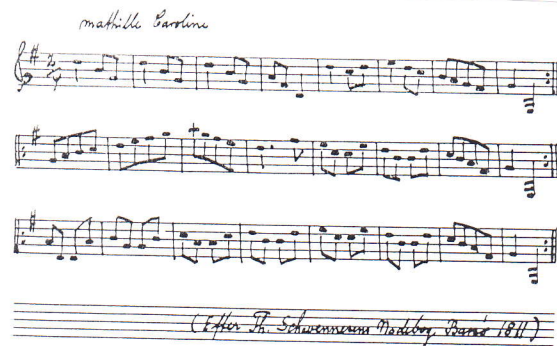 mathilde Caroline
2
4
(Efter Th. Schwennesens Nodebog, Barsø 1811)